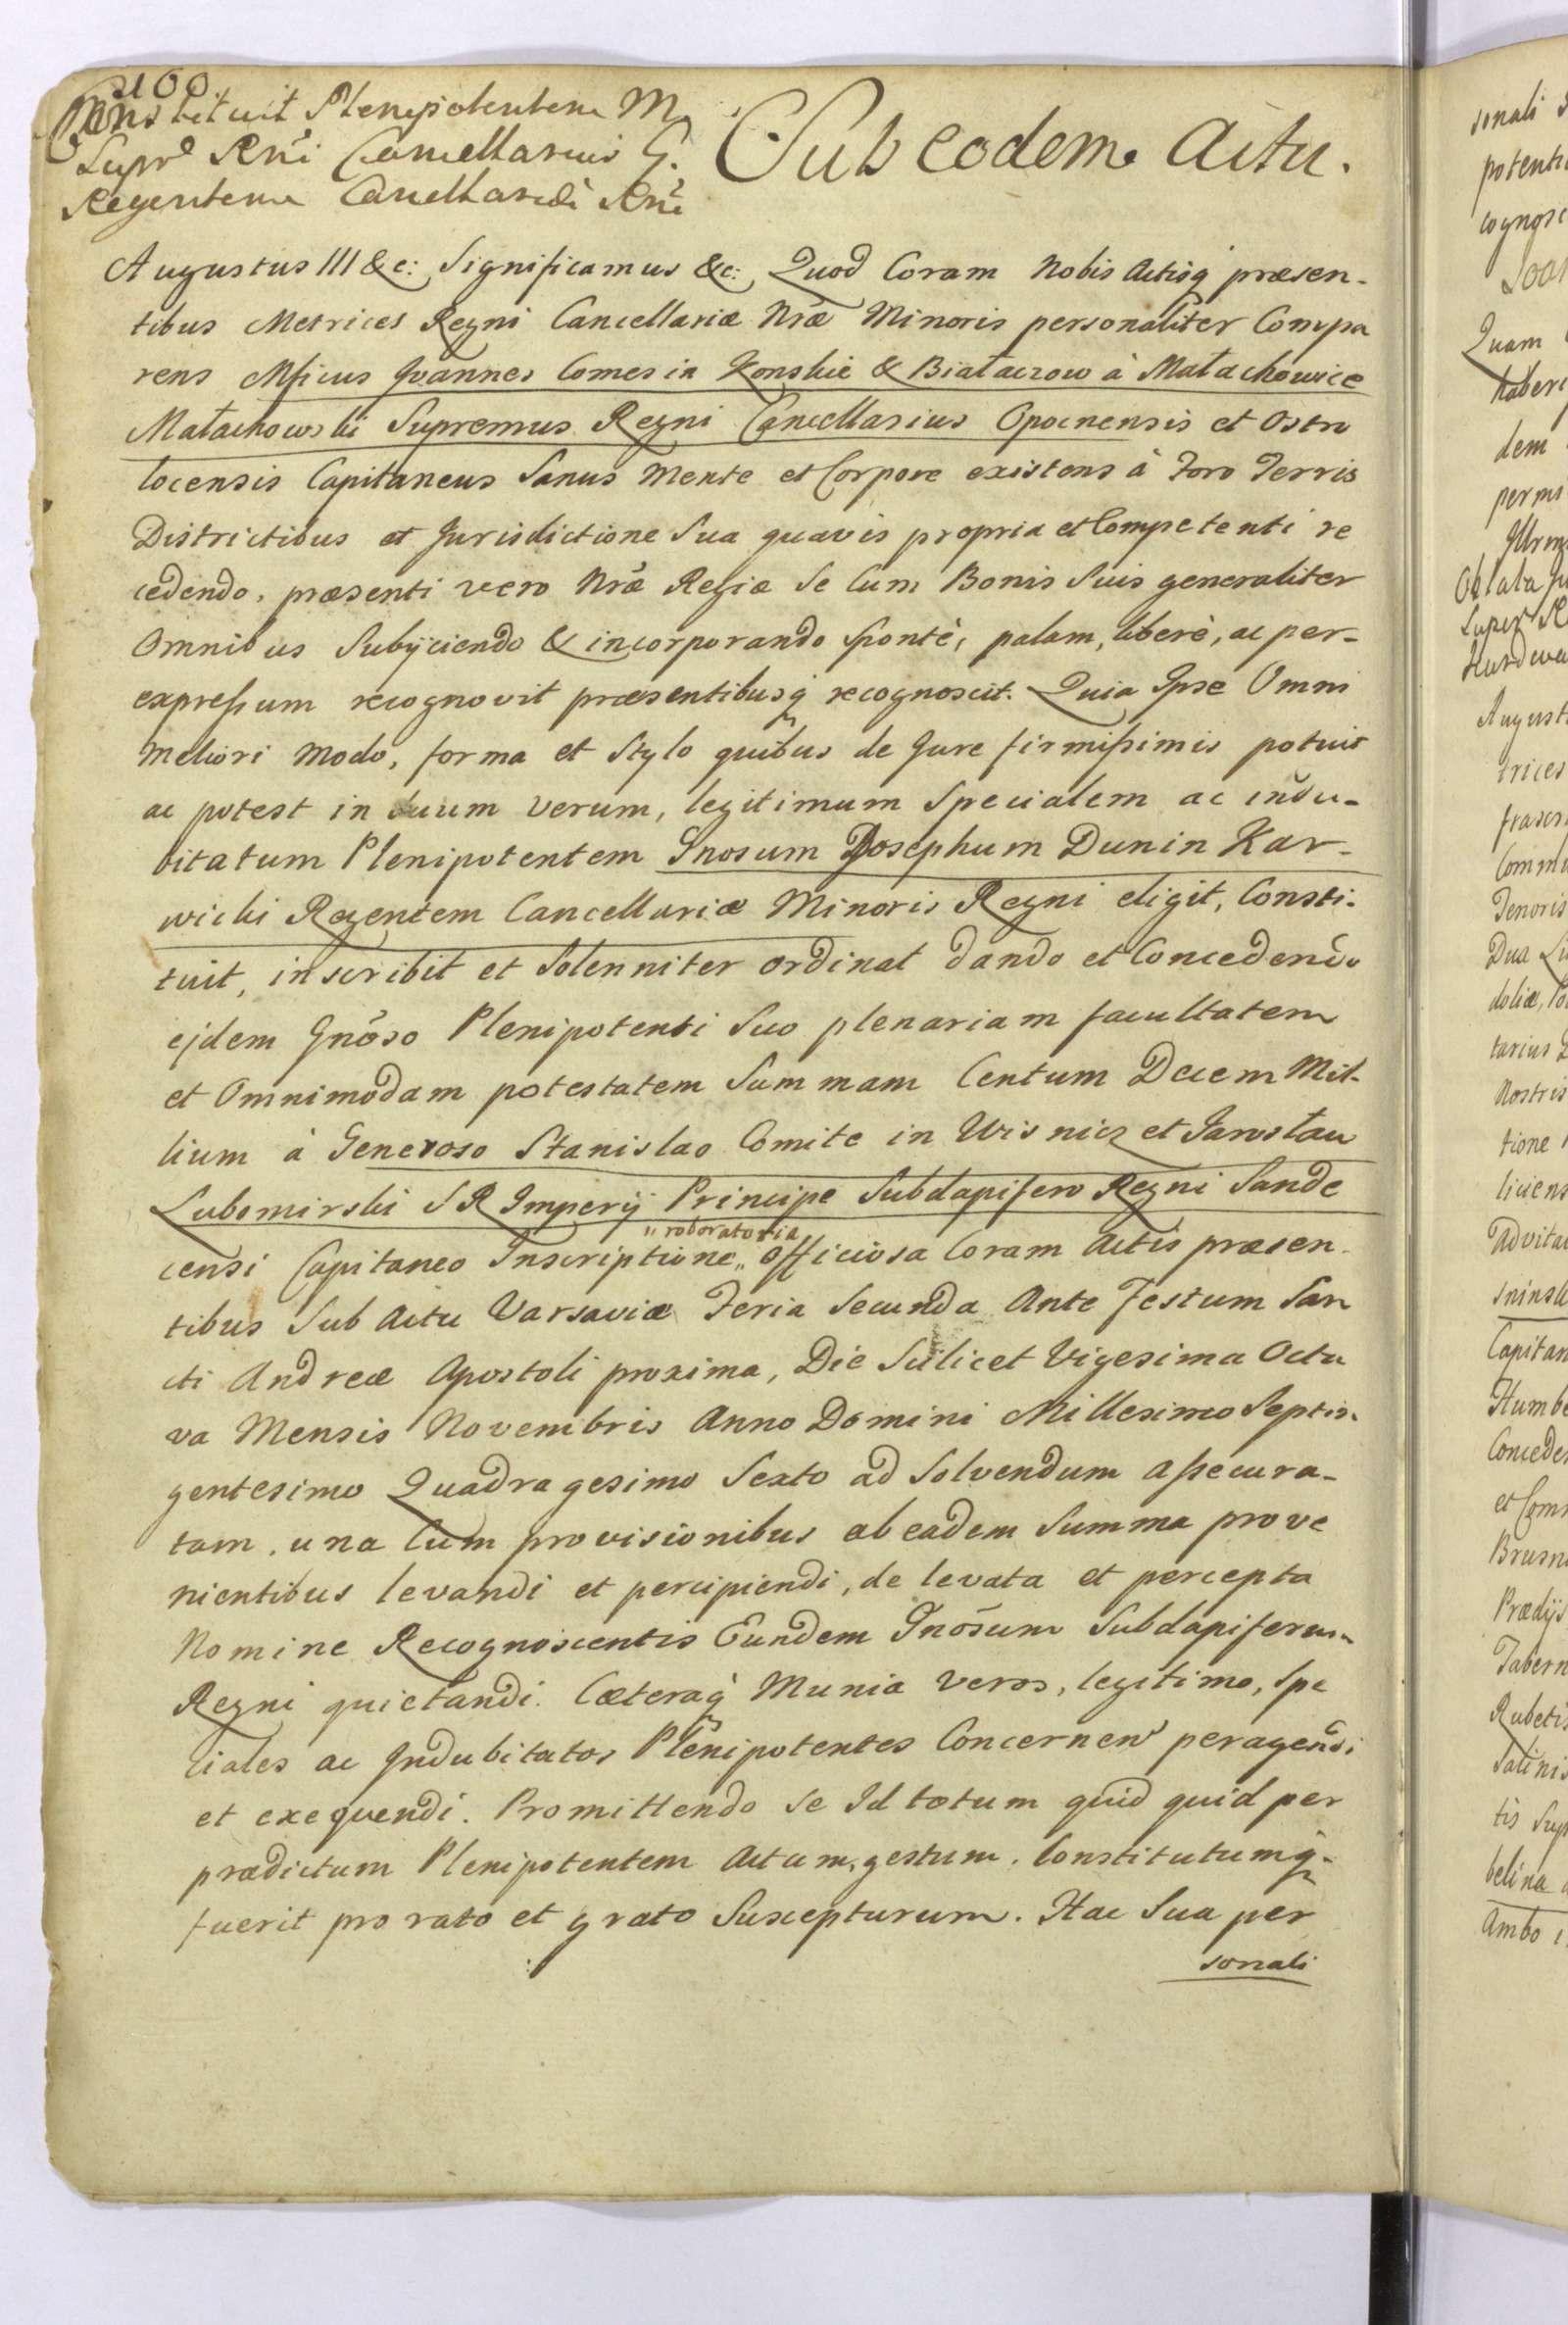 100
Constituit Plenipotentem M.
Supr. Rni Cancellarius G.
Regentem Cancellariæ Rni
Sub eodem Actu.
Augustus III &c: Significamus &c: Quod Coram Nobis Actisq præsen-
tibus Metrices Regni Cancellariæ Nræ Minoris personaliter Compa
rens Mficus Joannes Comes in Konskie & Białaczow à Małachowice
Małachowski Supremus Regni Cancellarius Opocnensis et Ostro
locensis Capitaneus Sanus Mente et Corpore existens à Foro Terris
Districtibus et Jurisdictione Sua quavis propria et Competenti re
cedendo, præsenti vero Nræ Regiæ Se Cum Bonis Suis generaliter
Omnibus Subijciendo & incorporando Spontè, palam, liberè, ac per-
expressum recognovit præsentibusq recognoscit. Quia Ipse Omni
meliori modo, forma et Stylo quibus de Jure firmissimis potuit
ac potest in Suum verum, legitimum Specialem ac indu-
bitatum Plenipotentem Gnosum Josephum Dunin Kar-
wicki Regentem Cancellariæ Minoris Regni eligit, Consti-
tuit, inscribit et Solenniter ordinat dando et Concedendo
ejdem Gnoso Plenipotenti Suo plenariam facultatem
et Omnimodam potestatem Summam Centum Decem Mil-
lium à Generoso Stanislao Comite in Wisnicz et Jarosłau
Lubomirski S R Imperij Principe Subdapifero Regni Sande
censi Capitaneo Inscriptione „ Officiosa Coram Actis præsen-
„ roboratoria
tibus Sub Actu Varsaviæ Feria Secunda Ante Festum San
cti Andreæ Apostoli proxima, Die Scilicet Vigesima Octa
va Mensis Novembris Anno Domini Millesimo Septin-
gentesimo Quadragesimo Sexto ad Solvendum assecura-
tam, una Cum provisionibus ab eadem Summa prove
nientibus levandi et percipiendi, de levata et percepta
Nomine Recognoscentis Eundem Gnosum Subdapiferum
Regni quietandi. Cæteraq Munia veros, legitimo, Spe
ciales ac Indubitatos Plenipotentes Concernen peragendi
et exequendi. Promittendo Se Id totum quid quid per
prædictum Plenipotentem Actum, gestum, Constitutumq.
fuerit pro rato et grato Suscepturum. Hac Sua per
sonali